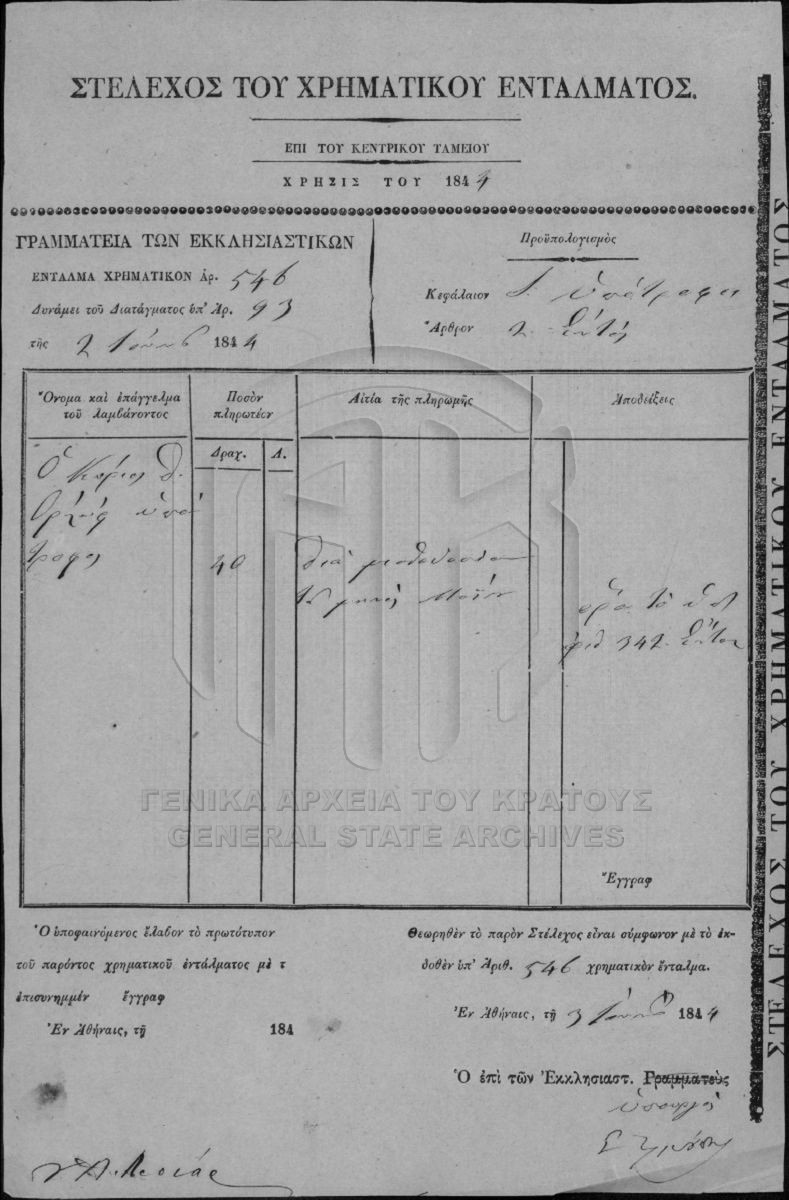 ΣΤΕΛΕΧΟΣ ΤΟΥ ΧΡΗΜΑΤΙΚΟΥ ΕΝΤΑΛΜΑΤΟΣ.
ΕΠΙ ΤΟΥ ΚΕΝΤΡΙΚΟΥ ΤΑΜΕΙΟΥ
ΧΡΗΣΙΣ ΤΟΥ 1844
ΓΡΑΜΜΑΤΕΙΑ ΤΩΝ ΕΚΚΛΗΣΙΑΣΤΙΚΩΝ
ΕΝΤΑΛΜΑ ΧΡΗΜΑΤΙΚΟΝ Ἀρ. 546
Δυνάμει τοῦ Διατάγματος ὑπ' Ἀρ. 93
τῆς 2 Ἰουνίου 1844
Προϋπολογισμὸς
Κεφάλαιον ὑπότροφοι
Ἄρθρον 2.
Ὄνομα καὶ ἐπάγγελμα
τοῦ λαμβάνοντος
Ποσὸν
πληρωτέον
Αἰτία τῆς πληρωμῆς
Ἀποδείξεις
Δραχ. Λ.
Ὁ Κύριος Θ.
ὑπό
τροφος
40
διὰ
τοῦ μηνὸς Μαΐου
ὅρα τὸ ὑπ'
ἀριθ 342
Ἔγγραφ
ΓΕΝΙΚΑ ΑΡΧΕΙΑ ΤΟΥ ΚΡΑΤΟΥΣ
GENERAL STATE ARCHIVES
Ὁ ὑποφαινόμενος ἔλαβον τὸ πρωτότυπον
τοῦ παρόντος χρηματικοῦ ἐντάλματος μὲ τ
ἐπισυνημμέν ἔγγραφ
Ἐν Ἀθήναις, τῇ 184
Θεωρηθὲν τὸ παρὸν Στέλεχος εἶναι σύμφωνον μὲ τὸ ἐκ-
δοθὲν ὑπ' Ἀριθ. 546 χρηματικὸν ἔνταλμα.
Ἐν Ἀθήναις, τῇ 3 Ἰουνίου 1844
Ὁ ἐπὶ τῶν Ἐκκλησιαστ. Γραμματεὺς
ὑπουργὸς
ΣΤΕΛΕΧΟΣ ΤΟΥ ΧΡΗΜΑΤΙΚΟΥ ΕΝΤΑΛΜΑΤΟΣ